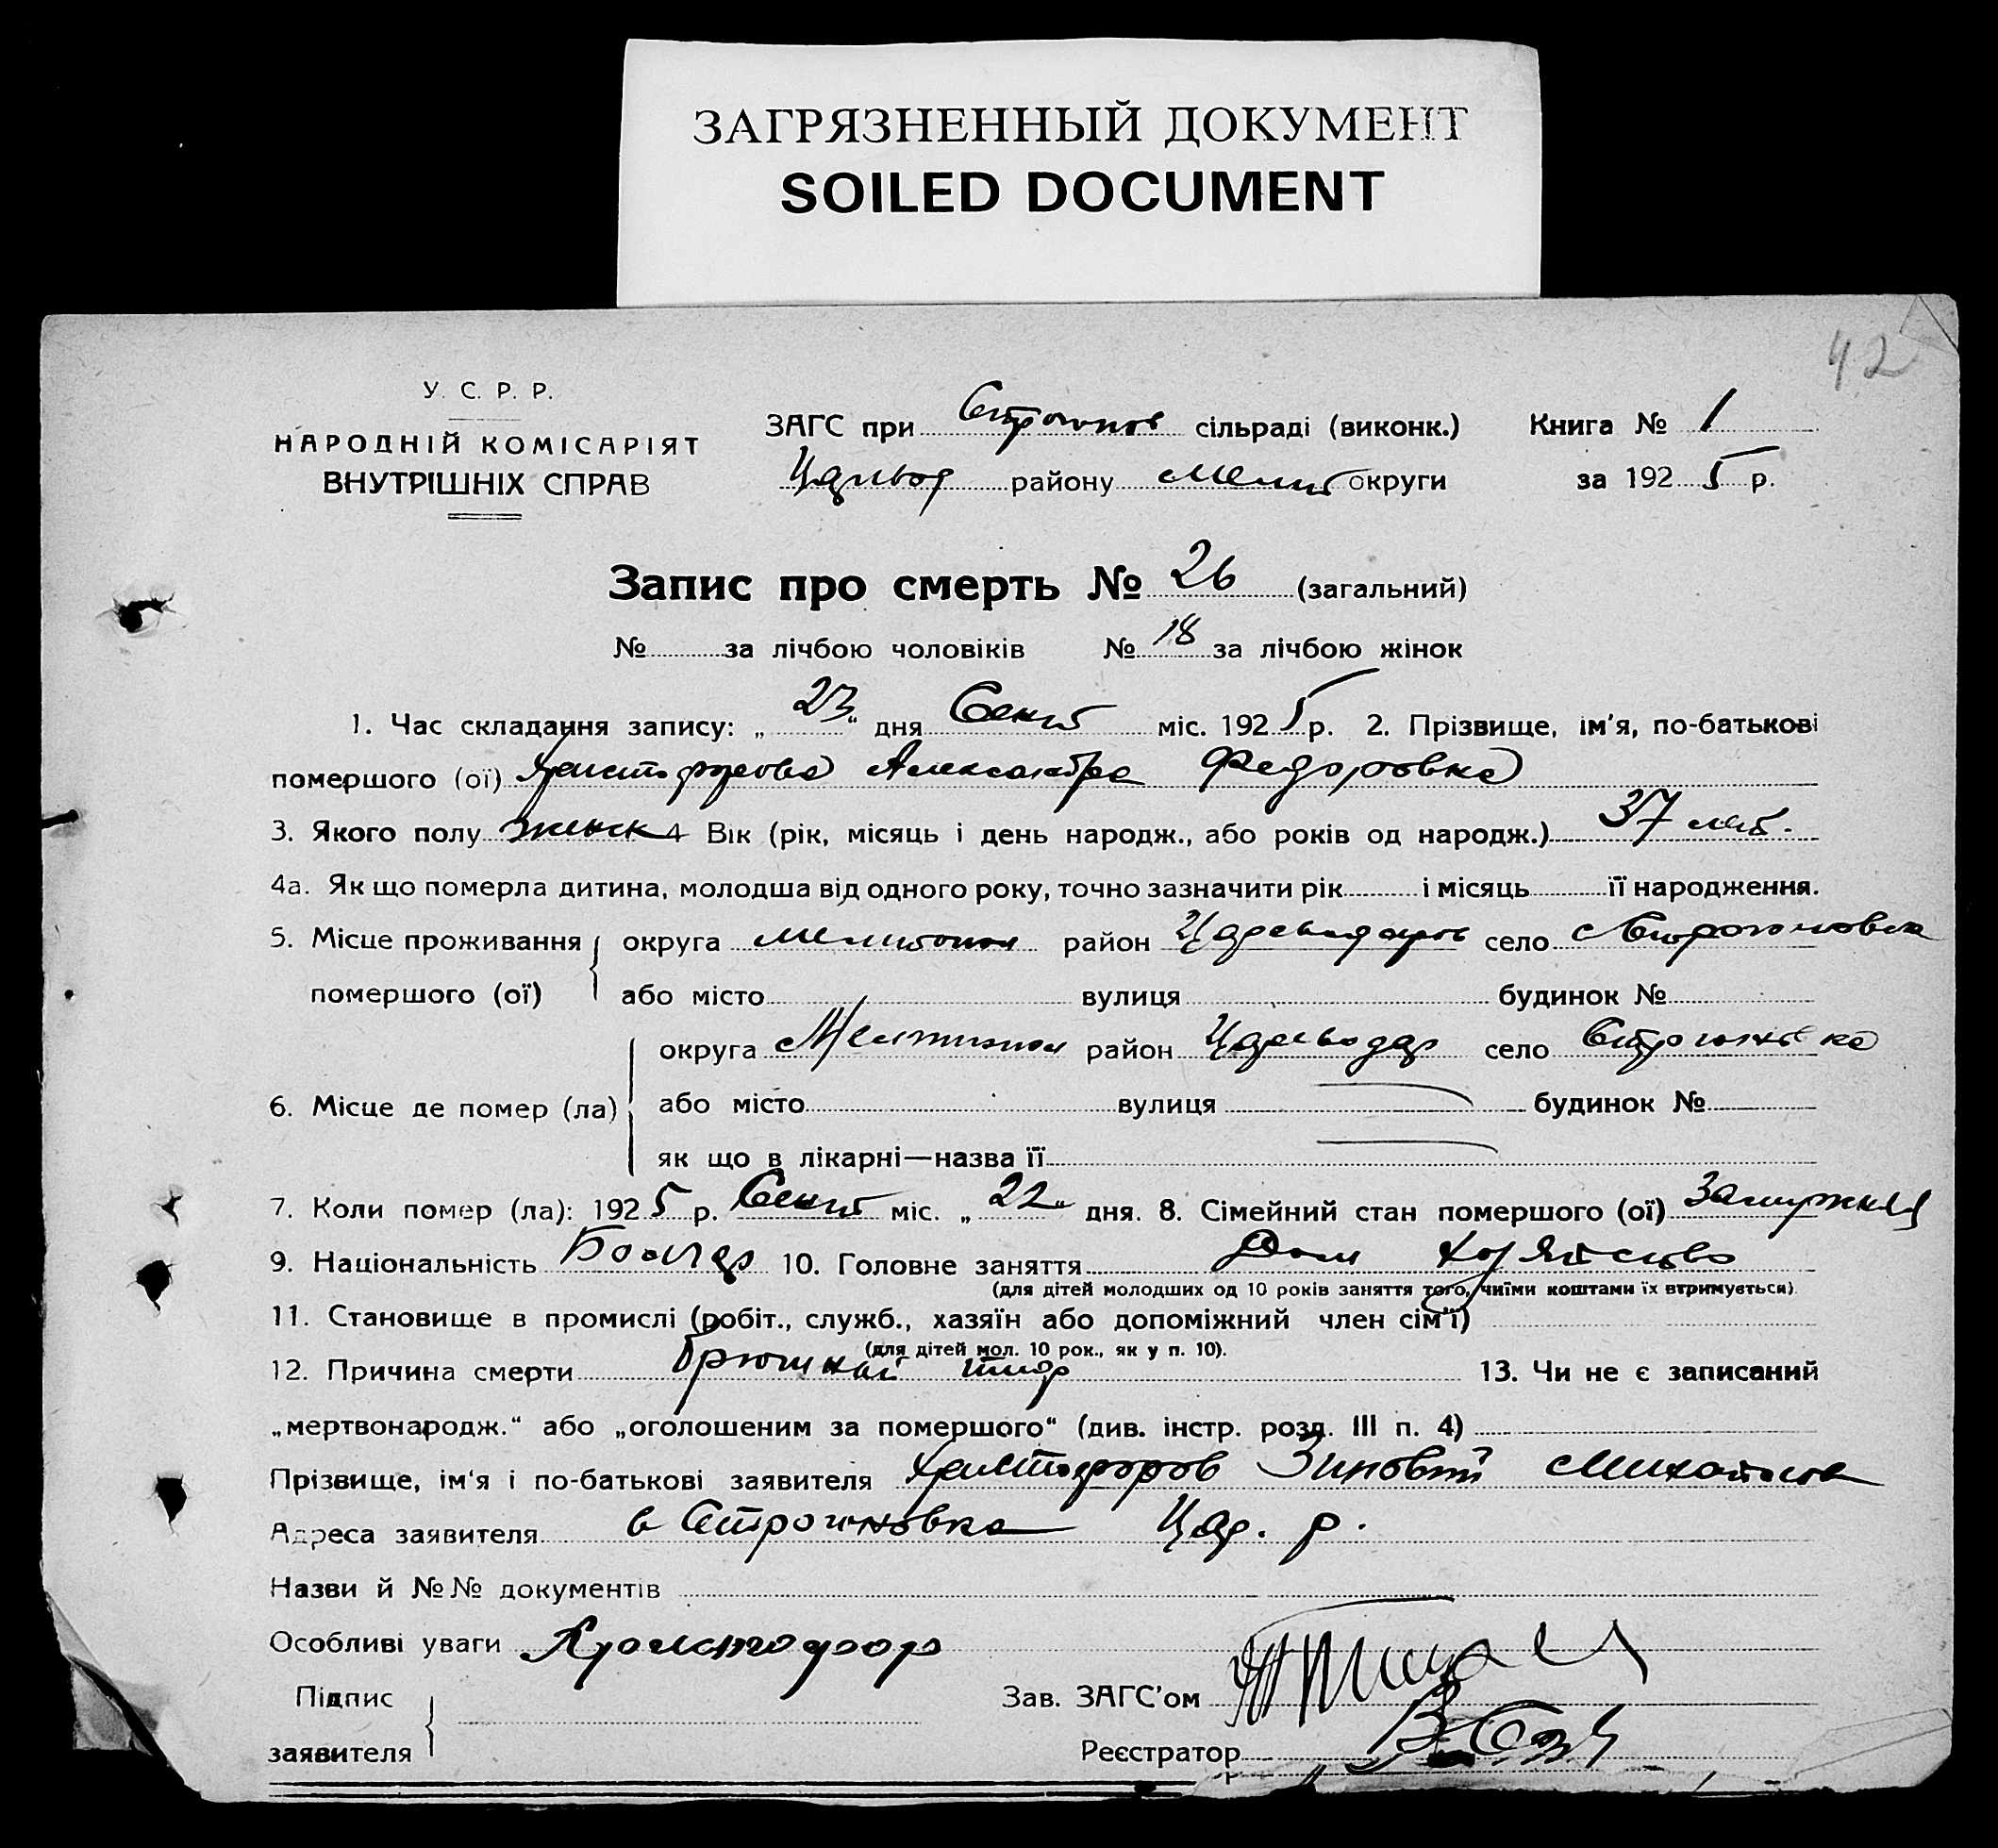 ЗАГРЯЗНЕННЫЙ ДОКУМЕНТ
SOILED DOCUMENT
42
У. С. Р. Р.
НАРОДНІЙ КОМІСАРІЯТ
ВНУТРІШНІХ СПРАВ
ЗАГС при Строганов сільраді (виконк.) Книга № 1
району Мелит округи за 1925 р.
Запис про смерть № 26 (загальний)
№ за лічбою чоловіків № 18 за лічбою жінок
1. Час складання запису: „23“ дня Сент міс. 1925 р. 2. Прізвище, ім'я, по-батькові
помершого (ої) Христофорова Александра Федоровна
3. Якого полу женск 4 Вік (рік, місяць і день народж., або років од народж.) 37 лет.
4а. Як що померла дитина, молодша від одного року, точно зазначити рік і місяць її народження.
5. Місце проживання округа Мелитопол район Цареводаров село Строгановка
помершого (ої) або місто вулиця будинок №
округа Мелитопол район Цареводар село Строгановка
6. Місце де помер (ла) або місто вулиця будинок №
як що в лікарні—назва її
7. Коли помер (ла): 1925 р. Сент міс. „22“ дня. 8. Сімейний стан помершого (ої) Замужняя
9. Національність Болгар 10. Головне заняття Дом хозяйство
(для дітей молодших од 10 років заняття того, чиїми коштами їх втримується)
11. Становище в промислі (робіт., служб., хазяїн або допоміжний член сім'ї)
(для дітей мол. 10 рок., як у п. 10).
12. Причина смерти брюшной тиф 13. Чи не є записаний
„мертвонародж.“ або „оголошеним за помершого“ (див. інстр. розд. III п. 4)
Прізвище, ім'я і по-батькові заявителя Христофоров Зиновий
Адреса заявителя с Строгановка Цар. р.
Назви й №№ документів
Особливі уваги Христофор
Підпис
заявителя
Зав. ЗАГС'ом
Реєстратор